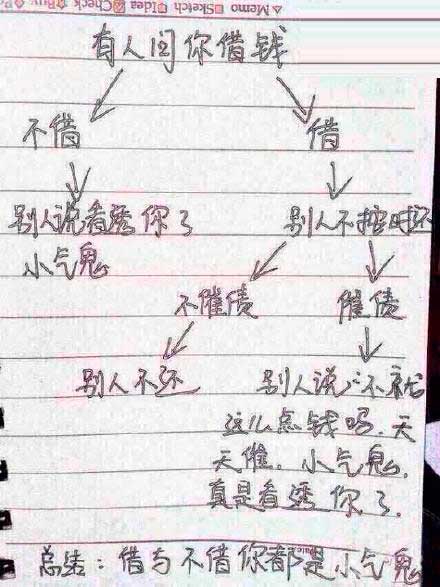 △ Memo □Sketch □Idea ☑Check
有人问你借钱
不借
借
别人说看透你了
小气鬼
别人不按时还
不催债
催债
别人不还
别人说:不就
这么点钱吗.天
天催.小气鬼.
真是看透你了.
总结:借与不借你都是小气鬼